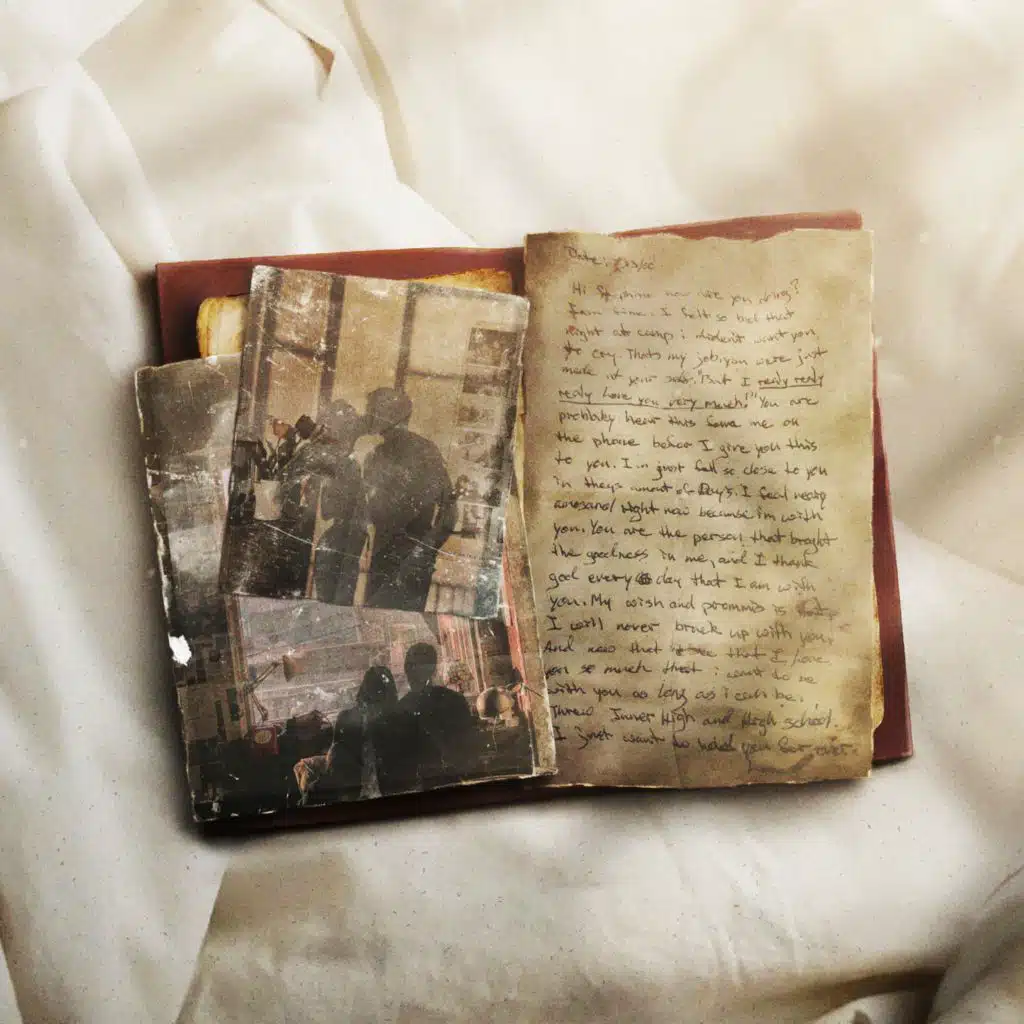 Date:
Hi how are you doing?
time. I felt so bad that
night at camp i didn't want you
to cry. Thats my job, you were just
made it your "But I really really
really love you very much!" You are
probbly hear this fome me on
the phone before I give you this
to you. I just fell so close to you
in theys amount of Day's. I feel
right now because im with
you. You are the person that bright
the goodness in me, and I thank
god every day that I am with
you. My wish and prommis is
I will never break up with you.
And now that that I love
you so much that i want to be
with you as long as i can be.
Threw Inner High and High school.
I just want to hold you for ever.